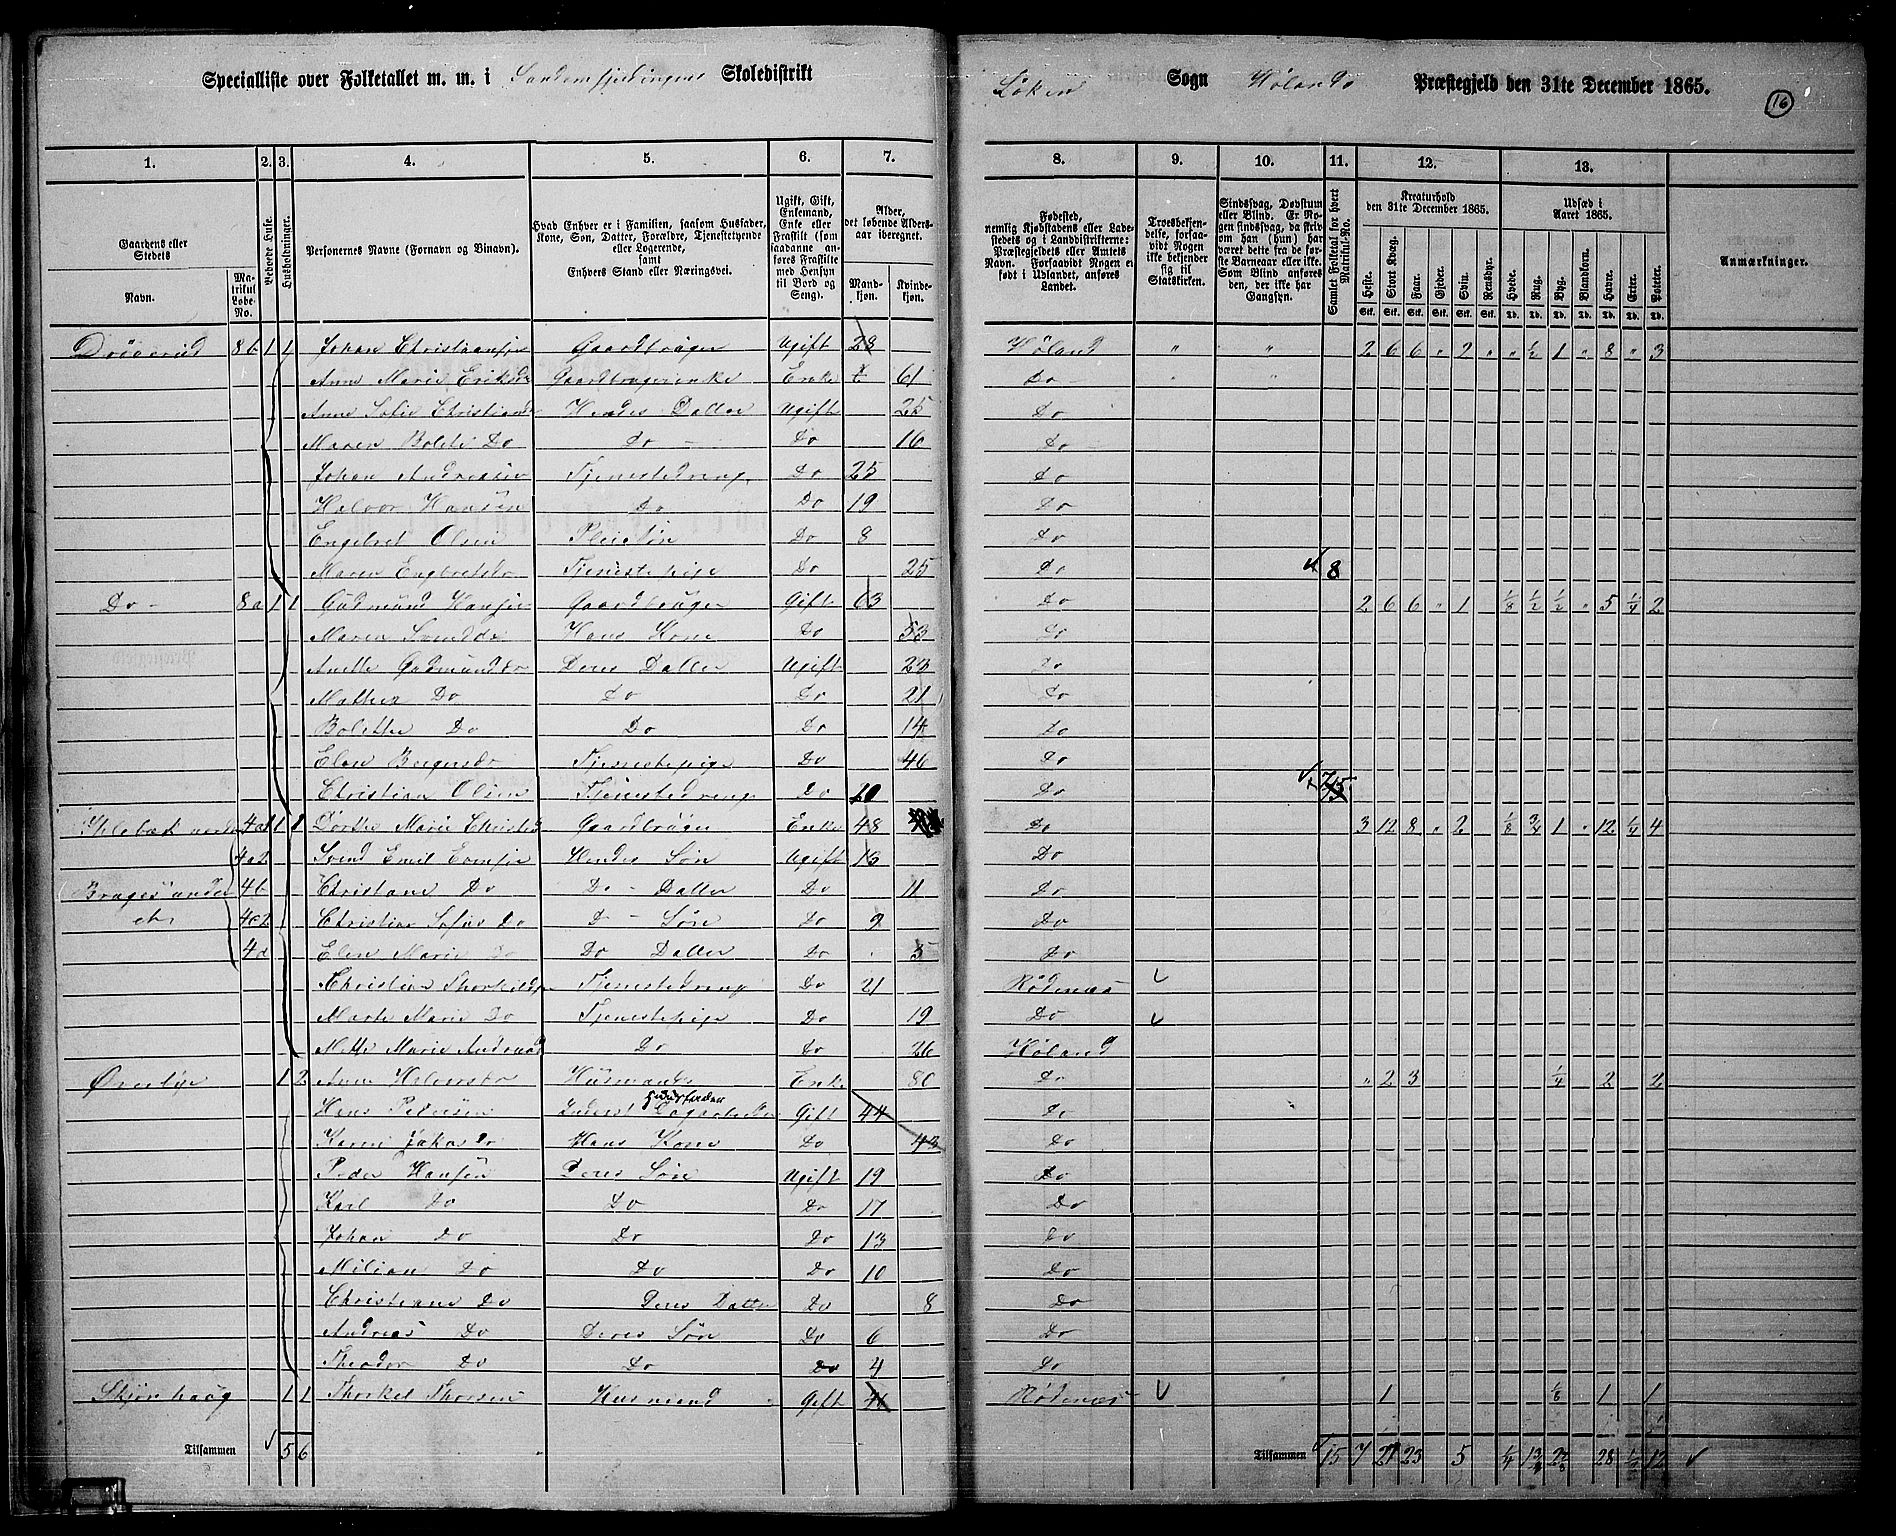 Specialliste over Folketallet m. m. i Skoledistrikt
Løken Sogn Hølands Præstegjeld den 31te December 1865.
16
1. 2. 3. 4. 5. 6. 7. 8. 9. 10. 11. 12. 13.
Gaardens eller Stedets Navn. Matrikul Løbe-No.
Beboede Huse.
Husholdninger.
Personernes Navne (Fornavn og Binavn).
Hvad Enhver er i Familien, saasom Husfader, Kone, Søn, Datter, Forældre, Tjenestetyende eller Logerende, samt Enhvers Stand eller Næringsvei.
Ugift, Gift, Enkemand, Enke eller Fraskilt (som saadanne anføres Fraskilte med Hensyn til Bord og Seng).
Alder, det løbende Aldersaar iberegnet. Mandkjøn. Kvindekjøn.
Fødested, nemlig Kjøbstadens eller Ladestedets og i Landdistrikterne: Præstegjeldets eller Amtets Navn. Forsaavidt Nogen er født i Udlandet, anføres Landet.
Troesbekjendelse, forsaavidt Nogen ikke bekjender sig til Statskirken.
Sindssvag, Døvstum eller Blind. Er Nogen sindssvag, da skrives om han (hun) har været dette fra de første Barneaar eller ikke. Som Blind anføres den, der ikke har Gangsyn.
Samlet Folketal for hvert Matrikul-No.
Kreaturhold den 31te December 1865.
Heste. Stort Kvæg. Faar. Gjeder. Svin. Rensdyr.
Udsæd i Aaret 1865.
Hvede. Rug. Byg. Blandkorn. Havre. Erter. Poteter.
Stk. Stk. Stk. Stk. Stk. Stk. Td. Td. Td. Td. Td. Td. Td.
Anmærkninger.
8b 1 1 Johan Christiansen Gaardbruger Ugift 28 Høland " " 2 6 6 " 2 " " 1/2 1 " 8 " 3
Anne Marie Eriksd Gaardbrugerenke Enke 61 Do
Anne Sofie Christiansd Hendes Datter Ugift 25 Do
Maren Bolette Do Do Do 16 Do
Johan Andreasen Tjenestedreng Do 25 Do
Halvor Hansen Do Do 19 Do
Engebret Olsen Pleiesøn Do 8 Do
Maren Engbretsdr Tjenestepige Do 25 Do 8
Do 8a 1 1 Gudmund Hansen Gaardbruger Gift 63 Do 2 6 6 " 1 1/8 1/2 1/2 " 5 1/4 2
Maren Svendsdr Hans Kone Do 53 Do
Anette Gudmundsdr Deres Datter Ugift 23 Do
Mathea Do Do Do 21 Do
Bolette Do Do Do 14 Do
Elen Tjenestepige Do 46 Do
Christian Olsen Tjenestedreng Do 20 Do
1 Dorthe Marie Gaardbruger Enke 48 Do 3 12 8 " 2 1/8 3/4 1 " 12 1/4 4
4a2 Svend Emil Hendes Søn Ugift 13 Do
4b Christiane Do Do Datter Do 11 Do
Christian Sofus Do D Søn Do 9 Do
4d Elen Marie Do Do Datter Do 5 Do
Christian Tjenestedreng Do 21 Rødenæs
Marte Marie Do Tjenestepige Do 19 Do
Mette Marie Do Do 26 Høland
1 2 Anne Halvorsdr Enke 80 Do " 2 3 1/4 2 2
Hans Pedersen Inderst Gift 44 Do
Karen Hans Kone Do 43 Do
Peder Hansen Deres Søn Ugift 19 Do
Karl Do Do Do 17 Do
Johan Do Do Do 13 Do
Milian Do Do Do 10 Do
Christiane Do Deres Datter Do 8 Do
Andreas Do Deres Søn Do 6 Do
Theodor Do Do Do 4 Do
1 1 Thorkel Thorsen Husmand Gift Rødenæs 1 1/8 1 1
Tilsammen 5 6
Tilsammen 15 7 27 23 5 1/4 28 1/2 12